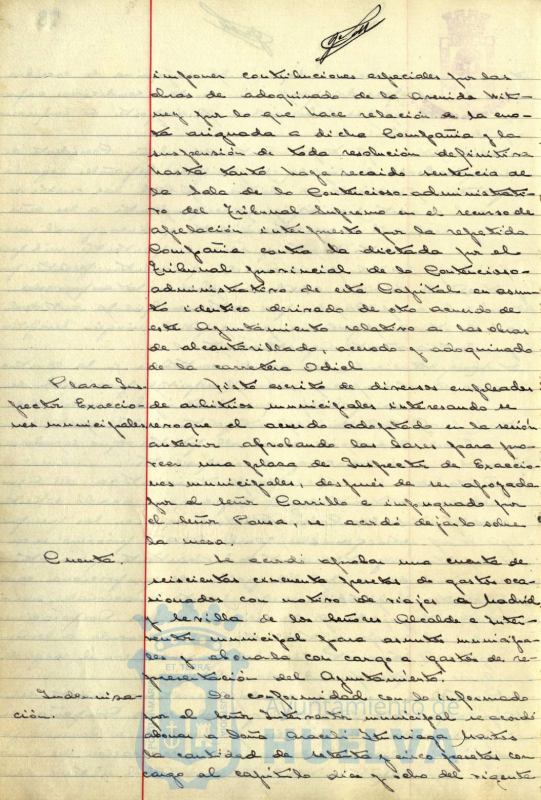 imponer contribuciones especiales por las
obras de adoquinado de la Avenida Wit-
ney por lo que hace relación a la cuo-
ta asignada a dicha Compañía y la
suspensión de toda resolución definitiva
hasta tanto haya recaido sentencia de
la Sala de lo Contencioso-administrati-
vo del Tribunal Supremo en el recurso de
apelación interpuesto por la repetida
Compañía contra la dictada por el
Tribunal provincial de lo Contencioso-
administrativo de esta Capital en asun-
to identico derivado de otro acuerdo de
este Ayuntamiento relativo a las obras
de alcantarillado, acerado y adoquinado
de la carretera Odiel
Plaza Ins-
pector Exaccio-
nes municipales
Visto escrito de diversos empleados
de arbitrios municipales interesando se
revoque el acuerdo adoptado en la sesión
anterior aprobando las bases para pro-
veer una plaza de Inspector de Exaccio-
nes municipales, después de ser apoyada
por el Señor Carrillo e impugnado por
el Señor Pousa, se acordó dejarlo sobre
la mesa.
Cuenta.
Se acordó aprobar una cuenta de
seiscientas cincuenta pesetas de gastos oca-
sionados con motivo de viajes a Madrid
y Sevilla de los Señores Alcalde e Inter-
ventor municipal para asuntos municipa-
les y abonarla con cargo a gastos de re-
presentación del Ayuntamiento.
Indemniza-
ción.
De conformidad con lo informado
por el Señor Interventor municipal se acordó
abonar a Doña Araceli Iturriaga Matos
la cantidad de setenta y cinco pesetas con
cargo al capítulo diez y ocho del vigente
Ayuntamiento de
HUELVA